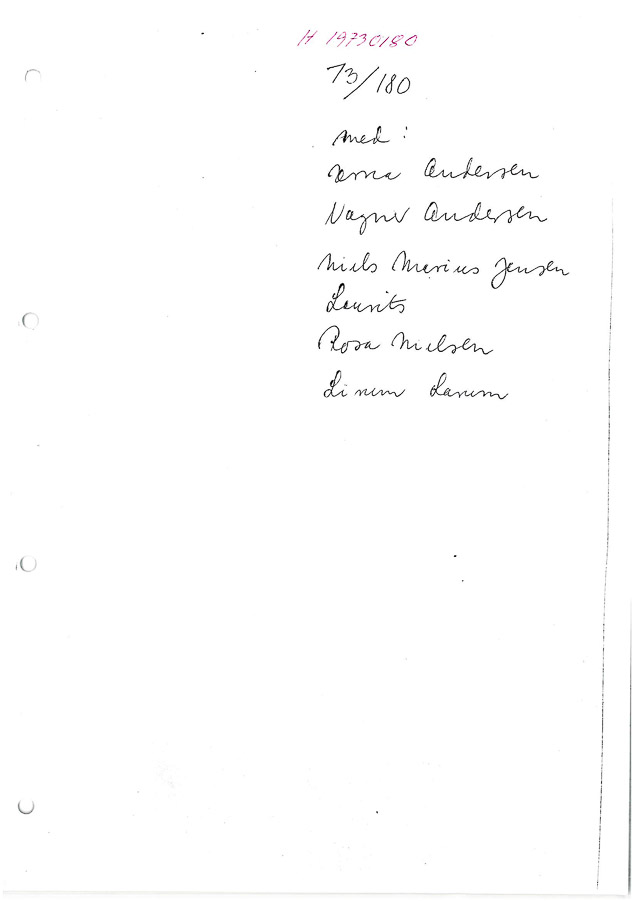 H 19730180
73/180
med :
Anna Andersen
Vagner Andersen
Niels Marius Jensen
Laurits
Rosa Nielsen
Linum Lanum